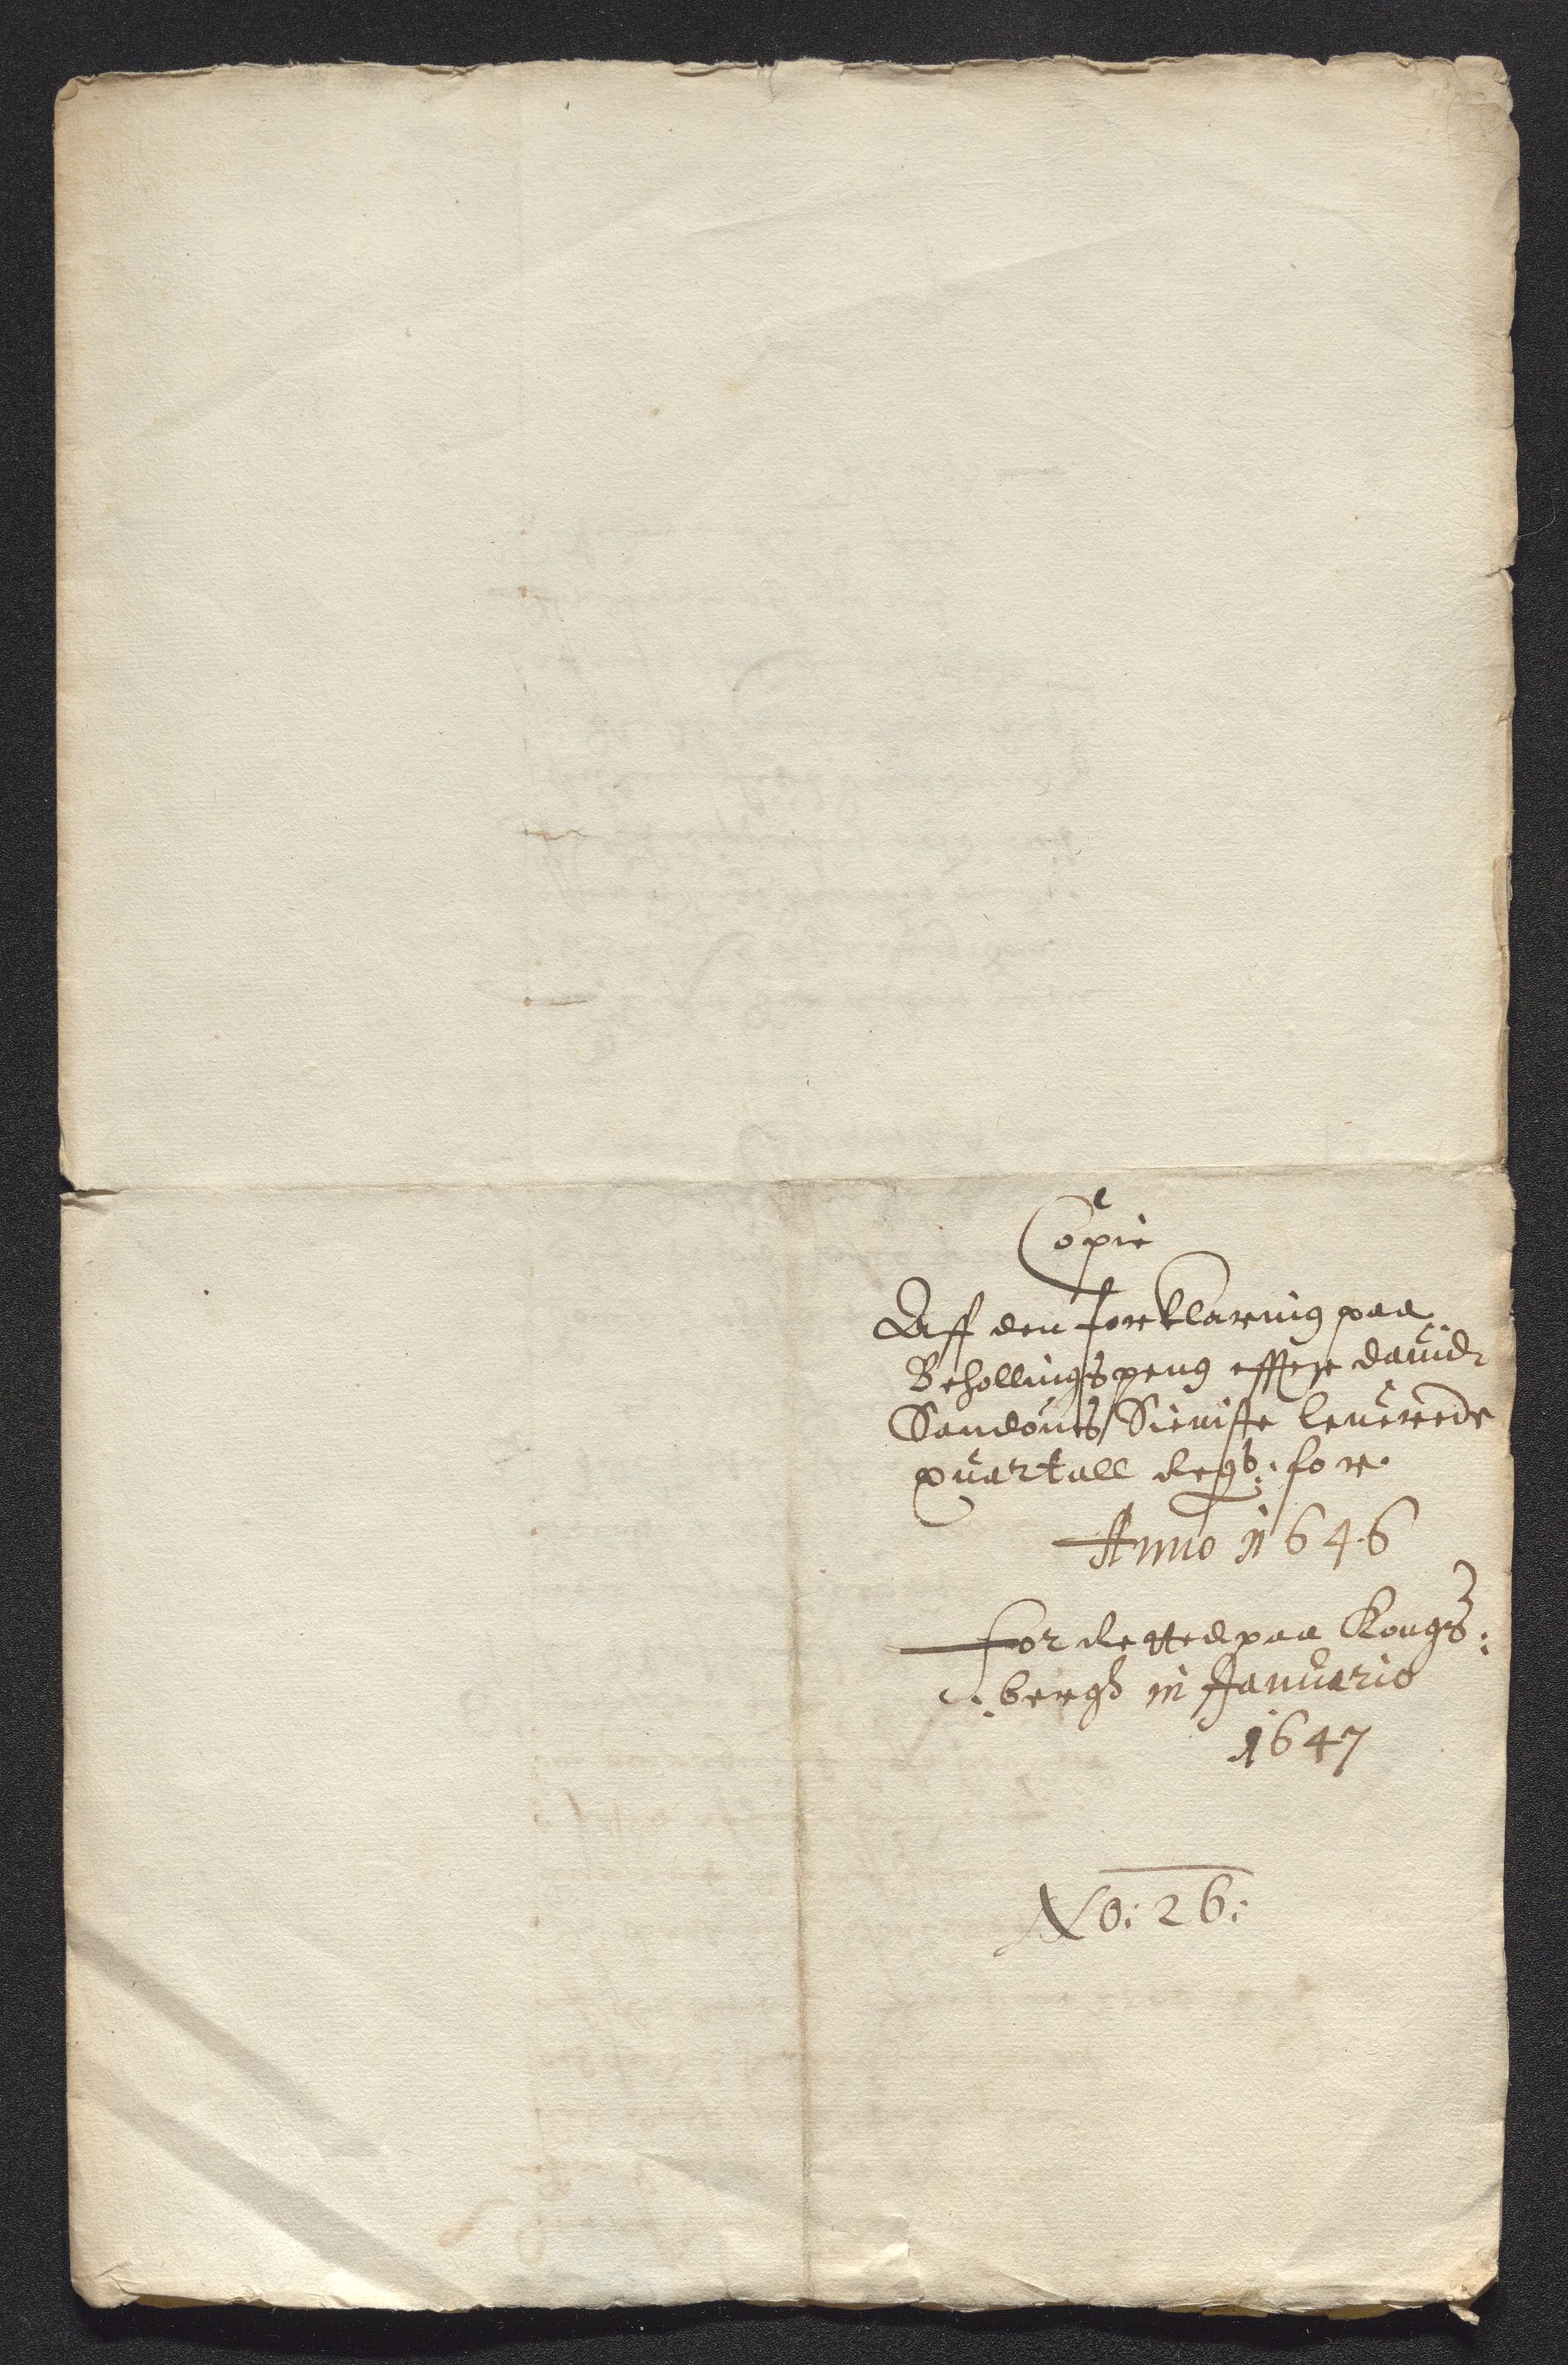 Copie
Aff den forklaring paa
Behollingspeng effter dauid
Sandōuts Sieniste leuerede
quartall Regs: for
Anno 1646
For Retted paa Kongs:
:bergh in Januario
1647
No: 26: